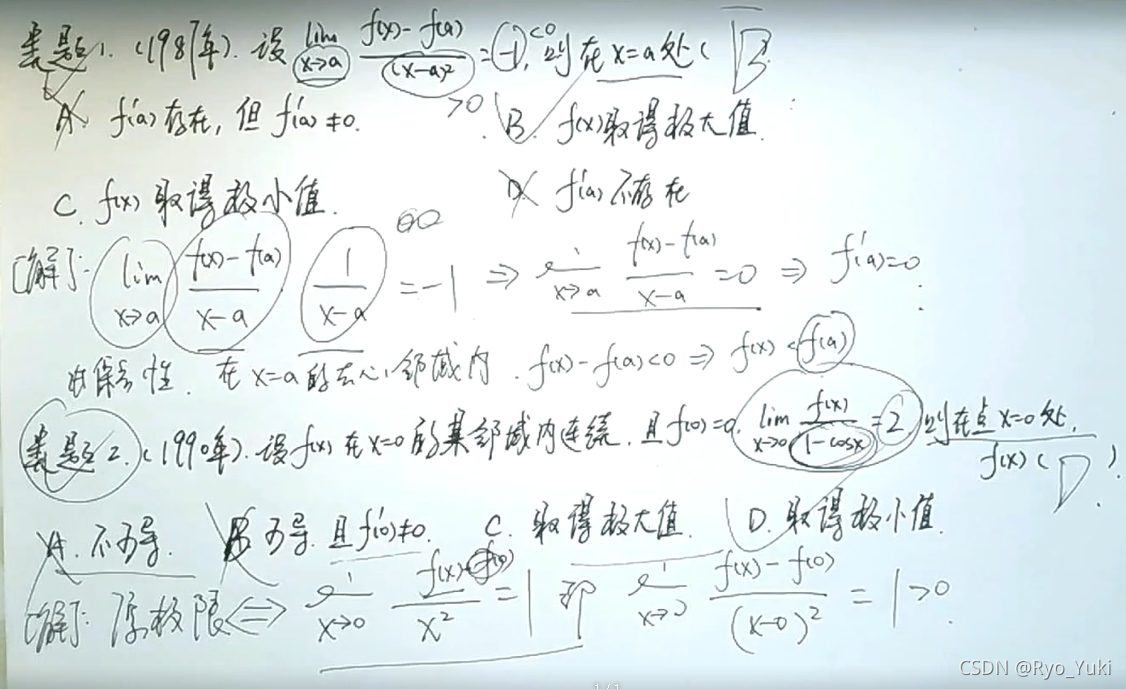 类题1. (1987年). 设 lim x→a f(x)-f(a) / (x-a)² = -1 <0, 则在x=a处( B
>0
A. f'(a)存在, 但f'(a)≠0. B. f(x)取得极大值.
C. f(x)取得极小值. D. f'(a)不存在
[解]: lim x→a f(x)-f(a) / x-a 1 / x-a = -1 ⇒ lim x→a f(x)-f(a) / x-a = 0 ⇒ f'(a)=0
∞
由保号性. 在x=a的去心邻域内. f(x)-f(a)<0 ⇒ f(x)<f(a)
类题2. (1990年). 设f(x)在x=0的某邻域内连续, 且f(0)=0, lim x→0 f(x) / 1-cosx = 2, 则在点x=0处,
f(x) ( D ).
A. 不可导. B. 可导. 且f'(0)≠0. C. 取得极大值. D. 取得极小值.
[解]: 原极限⇔ lim x→0 f(x)-f(0) / x² = 1 即 lim x→0 f(x)-f(0) / (x-0)² = 1 >0
CSDN @Ryo_Yuki
1/1